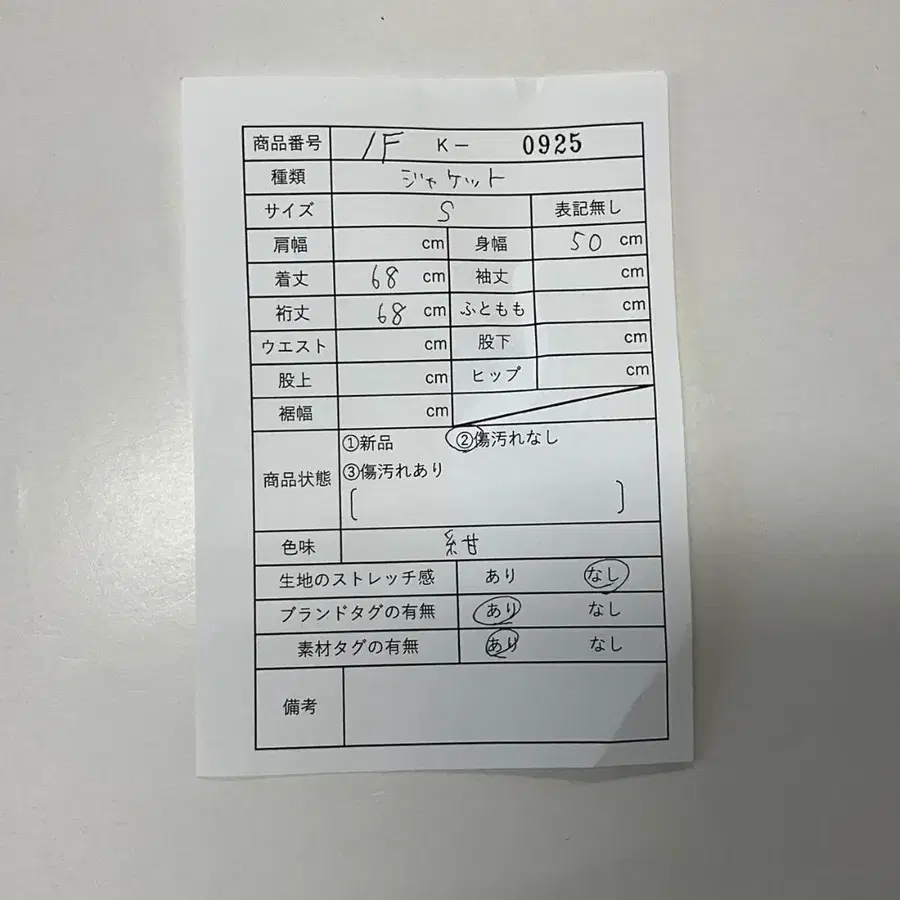 商品番号 1F K- 0925
種類 ジャケット
サイズ S 表記無し
肩幅 cm 身幅 50 cm
着丈 68 cm 袖丈 cm
裄丈 68 cm ふともも cm
ウエスト cm 股下 cm
股上 cm ヒップ cm
裾幅 cm
商品状態 ①新品 ②傷汚れなし
③傷汚れあり
[ ]
色味 紺
生地のストレッチ感 あり なし
ブランドタグの有無 あり なし
素材タグの有無 あり なし
備考